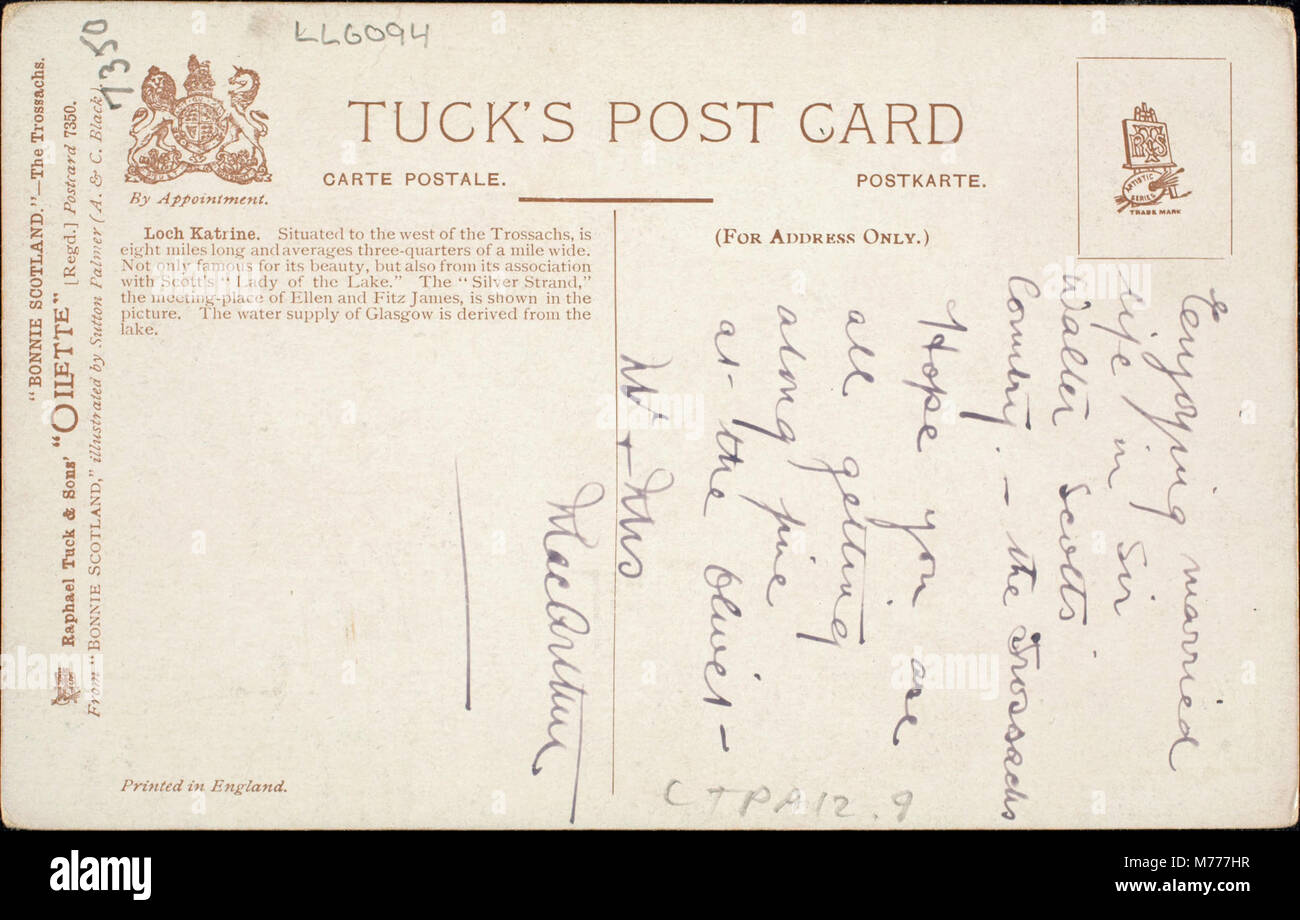 LL6094
7350
"BONNIE SCOTLAND."—The Trossachs.
Raphael Tuck & Sons' "OILETTE" [Regd.] Postcard 7350.
From "BONNIE SCOTLAND," illustrated by Sutton Palmer (A. & C. Black).
By Appointment.
TUCK'S POST CARD
CARTE POSTALE.
POSTKARTE.
(FOR ADDRESS ONLY.)
ARTISTIC
SERIES
TRADE MARK
Loch Katrine. Situated to the west of the Trossachs, is
eight miles long and averages three-quarters of a mile wide.
Not only famous for its beauty, but also from its association
with Scott's "Lady of the Lake." The "Silver Strand,"
the meeting-place of Ellen and Fitz James, is shown in the
picture. The water supply of Glasgow is derived from the
lake.
Enjoying married
life in Sir
Walter Scotts
Country. – the Trossachs
Hope you are
all getting
along fine
at the –
M + Mrs
MacArthur
Printed in England.
CTPA12.9
alamy
Image ID: M777HR
www.alamy.com